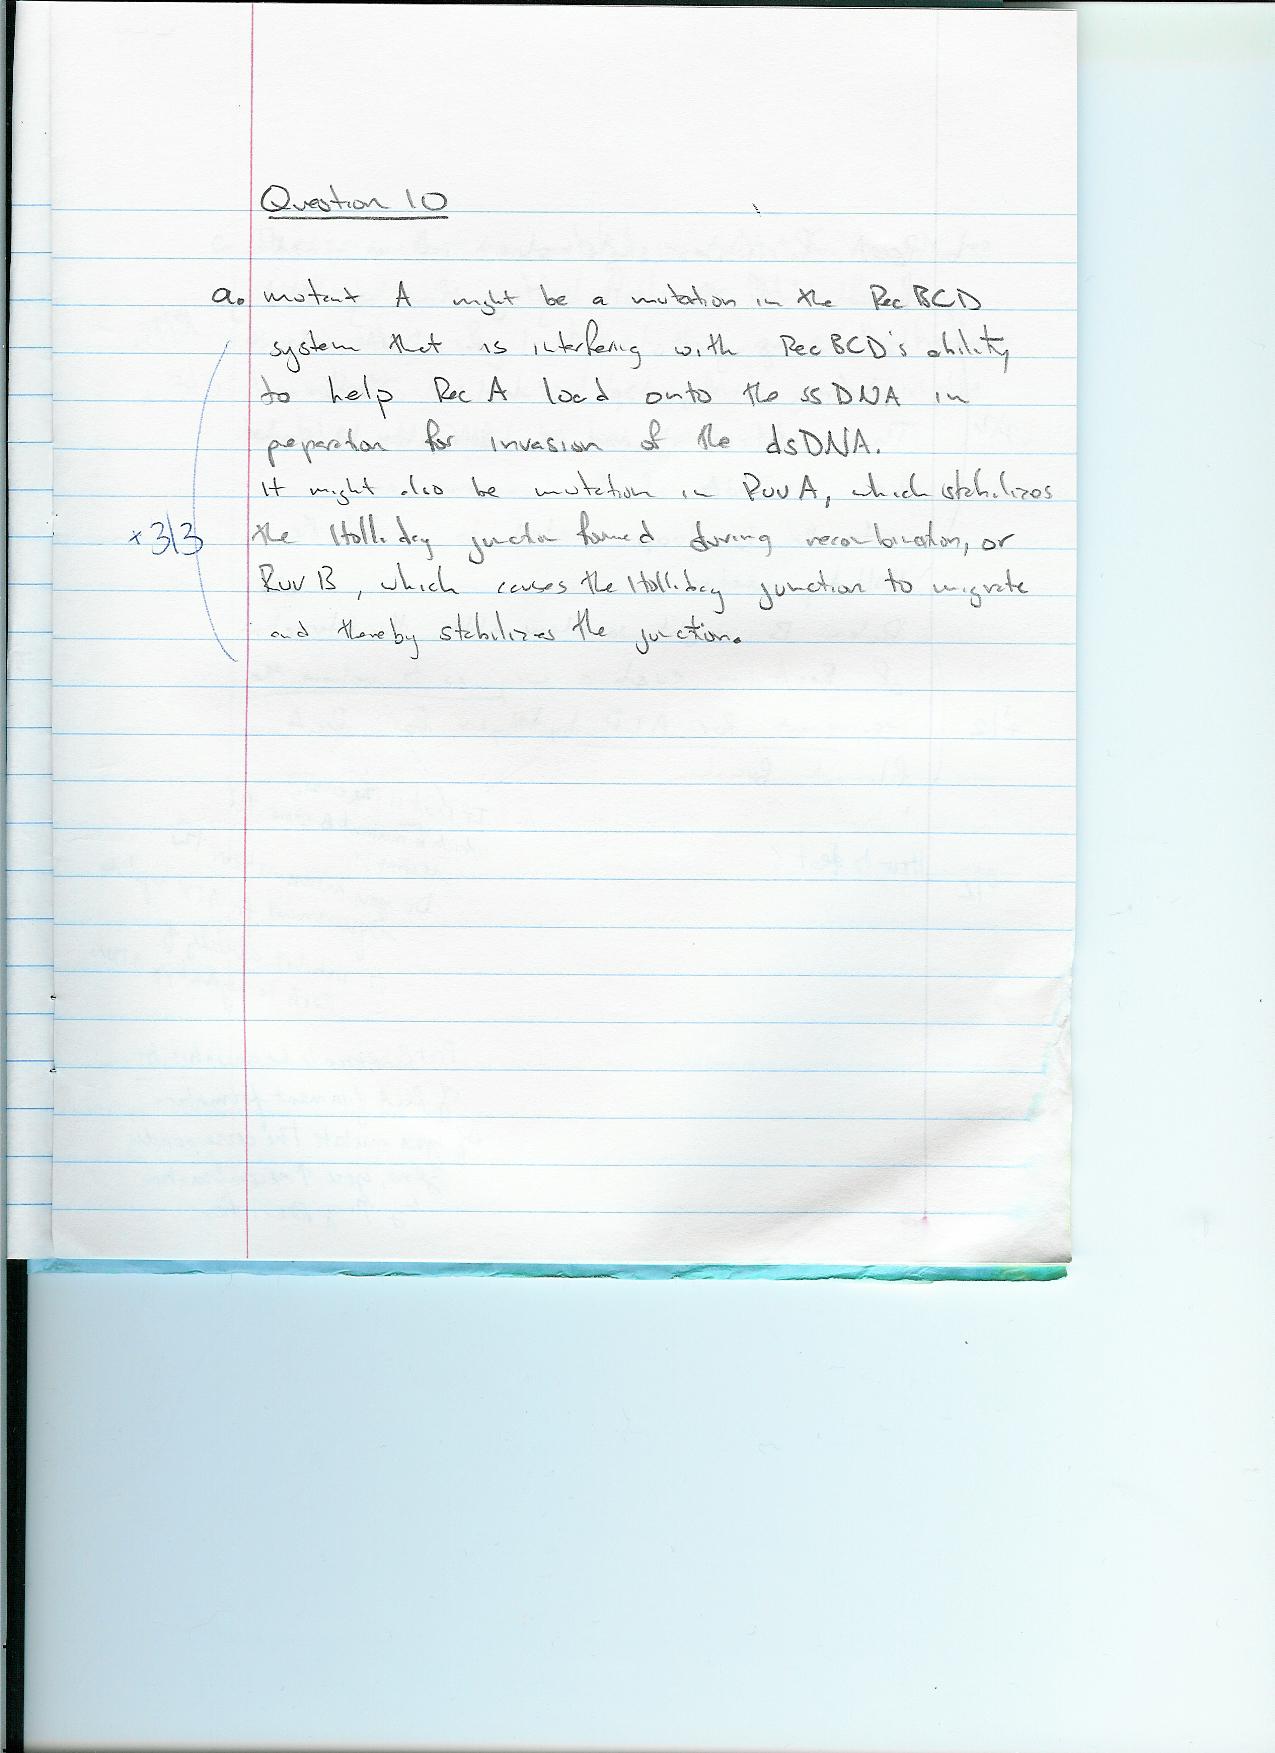 Question 10
a. mutant A might be a mutation in the RecBCD
system that is interfering with RecBCD's ability
to help Rec A load onto the ssDNA in
preparation for invasion of the dsDNA.
It might also be mutation in RuvA, which stabilizes
+3/3 the Holliday junction formed during recombination, or
RuvB, which causes the Holliday junction to migrate
and thereby stabilizes the junction.